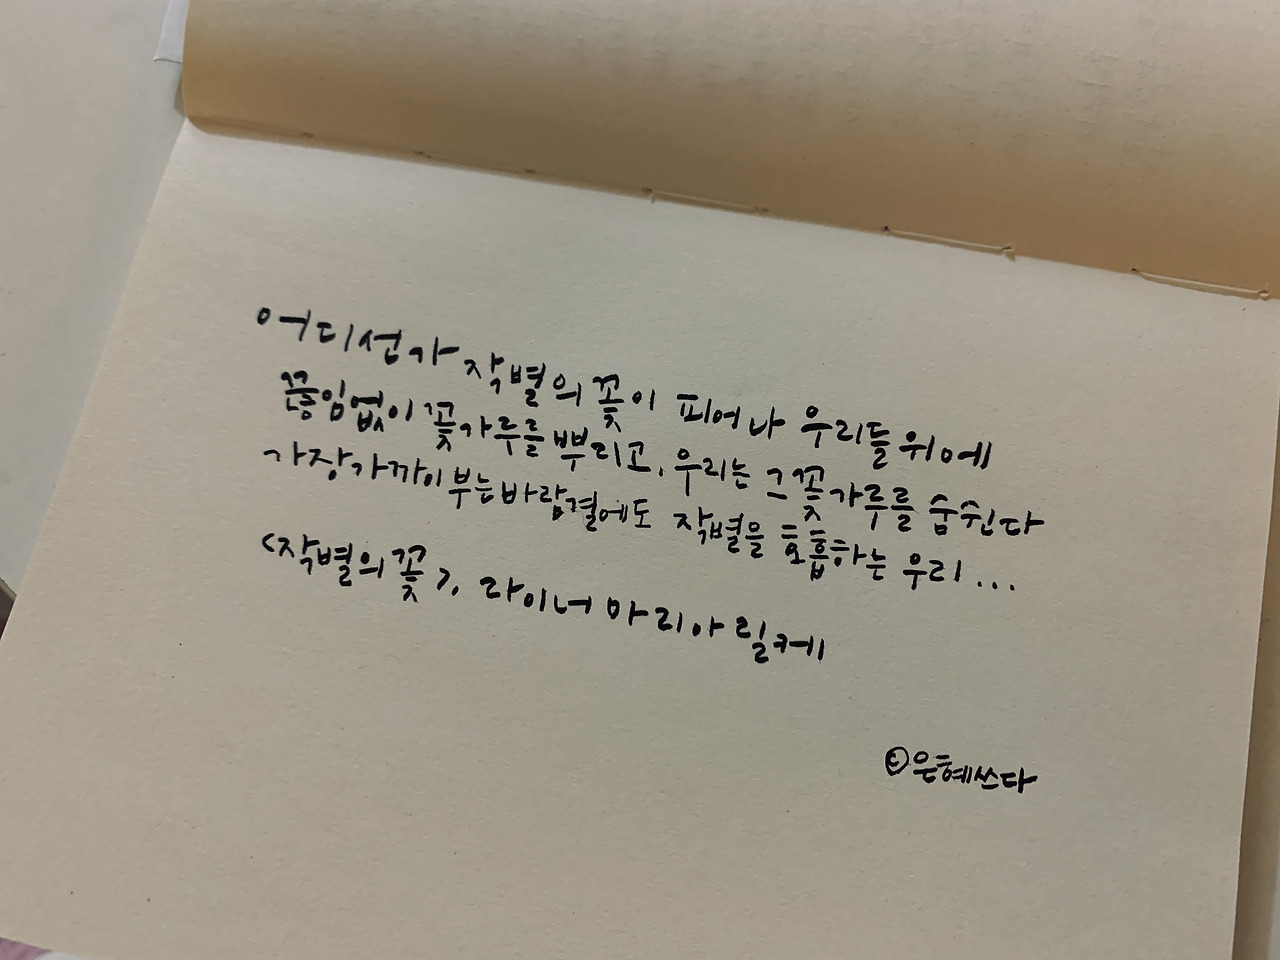 어디선가 작별의 꽃이 피어나 우리들 위에
끊임없이 꽃가루를 뿌리고, 우리는 그 꽃가루를 숨쉰다
가장 가까이 부는 바람결에도 작별을 호흡하는 우리...
<작별의 꽃>, 라이너 마리아 릴케
ⓒ은혜쓰다